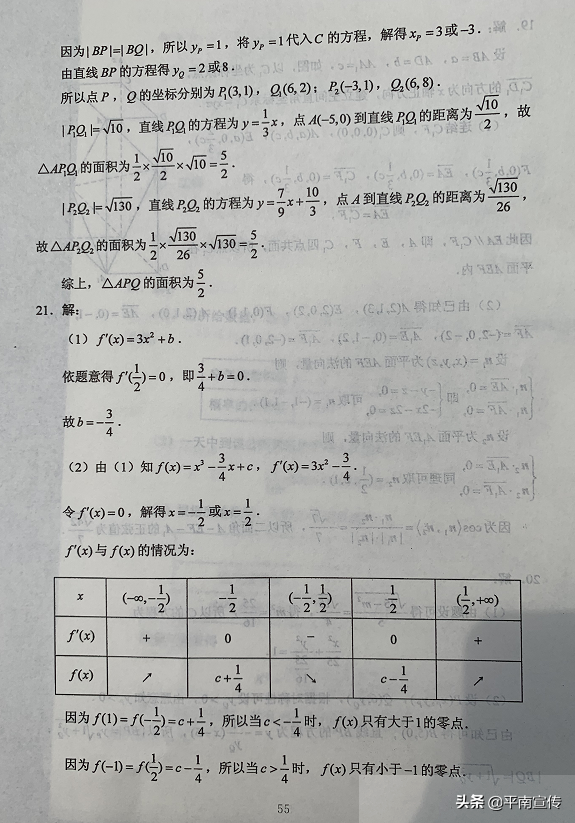 因为|BP|=|BQ|，所以y_P=1，将y_P=1代入C的方程，解得x_P=3或-3．
由直线BP的方程得y_Q=2或8．
所以点P，Q的坐标分别为P₁(3,1)，Q₁(6,2)；P₂(-3,1)，Q₂(6,8)．
|P₁Q₁|=√10，直线P₁Q₁的方程为y=1/3x，点A(-5,0)到直线P₁Q₁的距离为√10/2，故
△AP₁Q₁的面积为1/2×√10/2×√10=5/2．
|P₂Q₂|=√130，直线P₂Q₂的方程为y=7/9x+10/3，点A到直线P₂Q₂的距离为√130/26，
故△AP₂Q₂的面积为1/2×√130/26×√130=5/2．
综上，△APQ的面积为5/2．
21．解：
（1）f′(x)=3x²+b．
依题意得f′(1/2)=0，即3/4+b=0．
故b=-3/4．
（2）由（1）知f(x)=x³-3/4x+c，f′(x)=3x²-3/4．
令f′(x)=0，解得x=-1/2或x=1/2．
f′(x)与f(x)的情况为：
x (-∞,-1/2) -1/2 (-1/2,1/2) 1/2 (1/2,+∞)
f′(x) + 0 - 0 +
f(x) ↗ c+1/4 ↘ c-1/4 ↗
因为f(1)=f(-1/2)=c+1/4，所以当c<-1/4时，f(x)只有大于1的零点．
因为f(-1)=f(1/2)=c-1/4，所以当c>1/4时，f(x)只有小于-1的零点．
55
头条@平南宣传